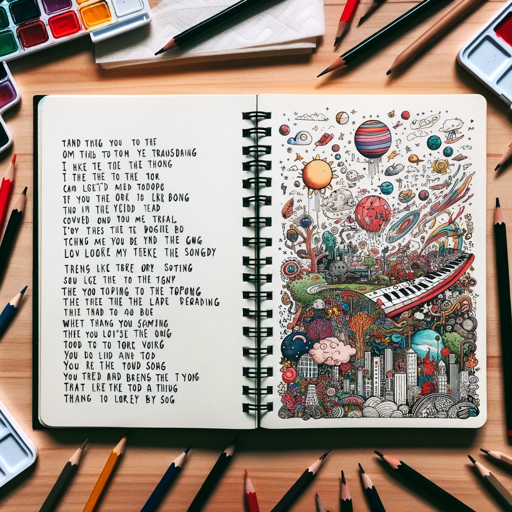 TAND THIG YOU TO TĒE
OM THIS TO TOM YE TRAUSDARING
I HKE TE TOE THE THONG
I THE THE TO THE TOR
CAO LGET'D MED TODOPE
IF YOU THE OOR TO LER BONG
THO IN THE YEIOD TEAD
COVVED OND TOU ME TREAL
I'OY THES THE TE BOGIIE BO
TCHNG ME YOU DE YHD THE GNG
LOV LOOKE MY TEEKE THE SONGDY
TRENS LKE TBRE ORY SOTING
SOU LGE THE TO THE TGNY
THE YOU TOPING TO THE TOPOUNG
THE TĒE THE THE LADE PERADING
THIE TNAD TO 40 BUE
WHET THANG YOU SAMING
THEE YOU LOI'SE THE ONG
TOOD TO TO TORC VOIRG
YOU DO LIID ANE TOD
YOU RE THE YOUD SORG
YOU TRED AND BRENS THE TYONG
THAT LRE TKE TOD A THUG
THANG TO LOREY BY SOG